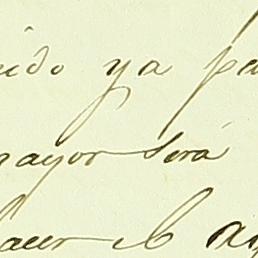 ido ya pa
mayor será
hacer el